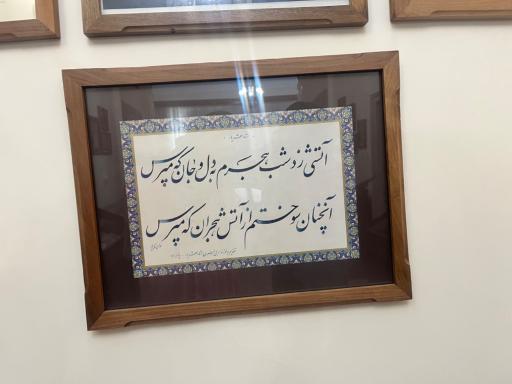 آتشی زد شب هجرم به دل و جان که مپرس
آنچنان سوختم از آتش هجران که مپرس